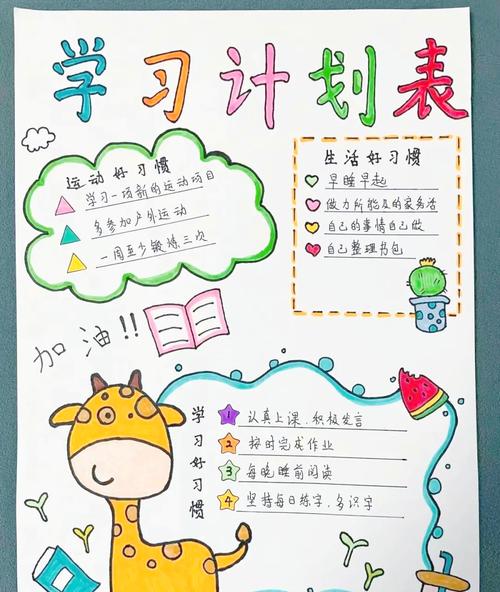 学习计划表
运动好习惯
学习一项新的运动项目
多参加户外运动
一周至少锻炼三次
生活好习惯
早睡早起
做力所能及的家务活
自己的事情自己做
自己整理书包
加油!!
学习好习惯
1 认真上课，积极发言
2 按时完成作业
3 每晚睡前阅读
4 坚持每日练字，多识字